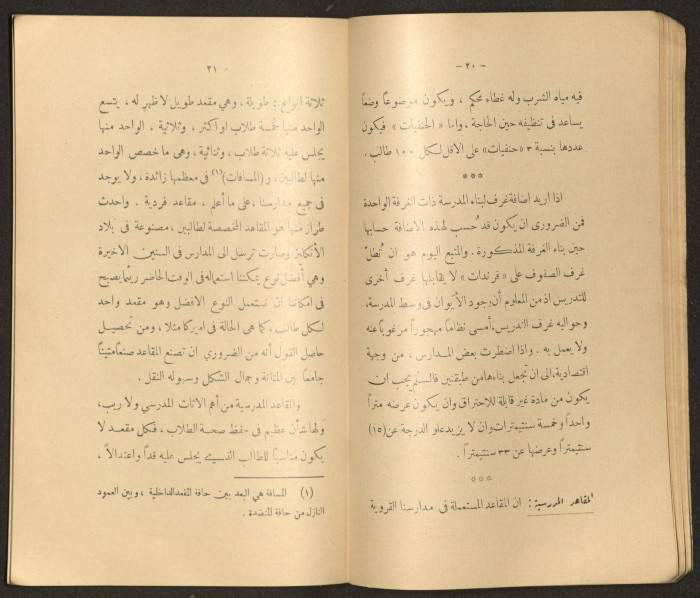 - ٢٠ -
فيه مياه الشرب وله غطاء محكم ، ويكون موضوعاً وضعاً
يساعد في تنظيفه حين الحاجة ، واما «الحنفيات» فيكون
عددها بنسبة ٣ «حنفيات» على الاقل لكل ١٥٠ طالب .
***
اذا اريد اضافة غرف لبناء المدرسة ذات الغرفة الواحدة
فمن الضروري ان يكون قد حُسب لهذه الاضافة حسابها
حين بناء الغرفة المذكورة . والمتبع اليوم هو ان تُطلّ
غرف الصفوف على «فرندات» لا يقابلها غرف أخرى
للتدريس اذ من المعلوم أن وجود الأيوان في وسط المدرسة،
وحواليه غرف التدريس، أمسى نظاماً مهجوراً مرغوباً عنه
ولا يعمل به . واذا اضطرت بعض المدارس ، من وجهة
اقتصادية، الى ان تجعل بناءها من طبقتين فالسلم يجب ان
يكون من مادة غير قابلة للاحتراق وان يكون عرضه متراً
واحداً وخمسة سنتيمترات وان لا يزيد علو الدرجة عن (١٥)
سنتيمتراً وعرضها عن ٣٣ سنتيمتراً .
***
المقاعد المدرسية : ان المقاعد المستعملة في مدارسنا القروية
٢١ -
ثلاثة انواع : طويلة ، وهي مقعد طويل لا ظهر له ، يتسع
الواحد منها خمسة طلاب او أكثر ، وثلاثية ، الواحد منها
يجلس عليه ثلاثة طلاب ، وثنائية ، وهي ما خصص الواحد
منها لطالبين ، و(المسافات)(١) في معظمها زائدة ، ولا يوجد
في جميع مدارسنا ، على ما أعلم ، مقاعد فردية . واحدث
طراز منها هو المقاعد المخصصة لطالبين ، مصنوعة في بلاد
الأنكليز وصارت ترسل الى المدارس في السنين الاخيرة
وهي أفضل نوع يمكننا استعماله في الوقت الحاضر ريثما يصبح
في امكاننا ان نستعمل النوع الافضل وهو مقعد واحد
لكل طالب ، كما هي الحالة في اميركا مثلا ، ومن تحصيل
حاصل القول أنه من الضروري ان تصنع المقاعد صنعاً متيناً
جامعاً بين المتانة وجمال الشكل وسهولة النقل .
والمقاعد المدرسية من أهم الاثاث المدرسي ولا ريب،
ولها شأن عظيم في حفظ صحة الطلاب . فكل مقعد لا
يكون مناسباً للطالب الذي يجلس عليه قداً واعتدالاً ،
(١) المسافة هي البعد بين حافة المقعد الداخلية ، وبين العمود
النازل من حافة المنضدة .